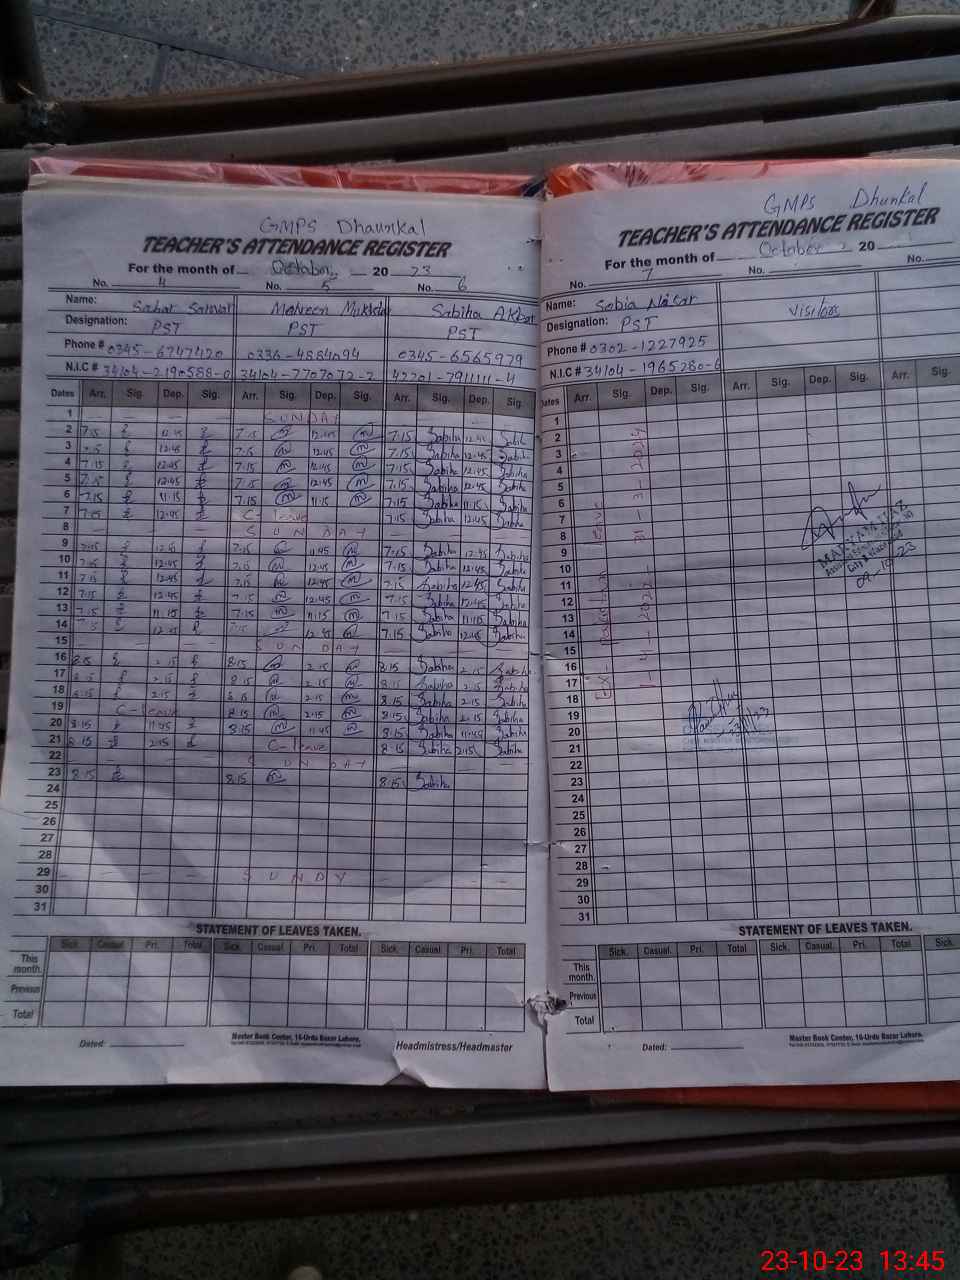 GMPS Dhaunkal
TEACHER'S ATTENDANCE REGISTER
For the month of October 20 23
No. 4 No. 5 No. 6
Name: Sahar Mahveen Sabiha Akbar
Designation: PST PST PST
Phone # 0345-6747420 0336-4884094 0345-6565979
N.I.C # 34104-2190588-0 34104-7707072-2 42201-7911111-4
Dates Arr. Sig. Dep. Sig. Arr. Sig. Dep. Sig. Arr. Sig. Dep. Sig.
1 SUNDAY
2 7.15 12.45 7.15 12.45 7.15 Sabiha 12.45
3 7.15 12.45 7.15 12.45 7.15 Sabiha 12.45 Sabiha
4 7.15 12.45 7.15 12.45 7.15 Sabiha 12.45 Sabiha
5 7.15 12.45 7.15 12.45 7.15 Sabiha 12.45 Sabiha
6 7.15 11.15 7.15 11.15 7.15 Sabiha 11.15 Sabiha
7 7.15 12.45 C-leave 7.15 Sabiha 12.45 Sabiha
8 SUNDAY
9 7.15 7.15 7.15 Sabiha 12.45 Sabiha
10 7.15 12.45 7.15 12.45 7.15 Sabiha 12.45 Sabiha
11 7.15 12.45 7.15 12.45 7.15 Sabiha 12.45 Sabiha
12 7.15 12.45 7.15 12.45 7.15 Sabiha 12.45 Sabiha
13 7.15 11.15 7.15 11.15 7.15 Sabiha 11.15 Sabiha
14 7.15 12.45 7.15 12.45 7.15 Sabiha 12.45 Sabiha
15 SUNDAY
16 8.15 2.15 8.15 2.15 8.15 Sabiha 2.15 Sabiha
17 8.15 2.15 8.15 2.15 8.15 Sabiha 2.15 Sabiha
18 8.15 2.15 8.15 2.15 8.15 Sabiha 2.15 Sabiha
19 C-leave 8.15 2.15 8.15 Sabiha 2.15 Sabiha
20 8.15 11.45 8.15 11.45 8.15 Sabiha 11.45 Sabiha
21 8.15 2.15 C-leave 8.15 Sabiha 2.15 Sabiha
22 SUNDAY
23 8.15 8.15 8.15 Sabiha
24
25
26
27
28
29 SUNDY
30
31
STATEMENT OF LEAVES TAKEN.
Sick. Casual. Pri. Total Sick. Casual. Pri. Total Sick. Casual. Pri. Total
This month.
Previous
Total
Dated:
Master Book Center, 16-Urdu Bazar Lahore.
Headmistress/Headmaster
GMPS Dhunkal
TEACHER'S ATTENDANCE REGISTER
For the month of October 20
No. 7 No. No.
Name: Sobia Visitors
Designation: PST
Phone # 0302-1227925
N.I.C # 34104-1965280-6
Dates Arr. Sig. Dep. Sig. Arr. Sig. Dep. Sig. Arr. Sig.
1
2
3
4
5
6
7
8
9
10
11
12
13
14
15
16
17
18
19
20
21
22
23
24
25
26
27
28
29
30
31
STATEMENT OF LEAVES TAKEN.
Sick. Casual. Pri. Total Sick. Casual. Pri. Total Sick.
This month.
Previous
Total
Dated:
Master Book Center, 16-Urdu Bazar Lahore.
23-10-23 13:45